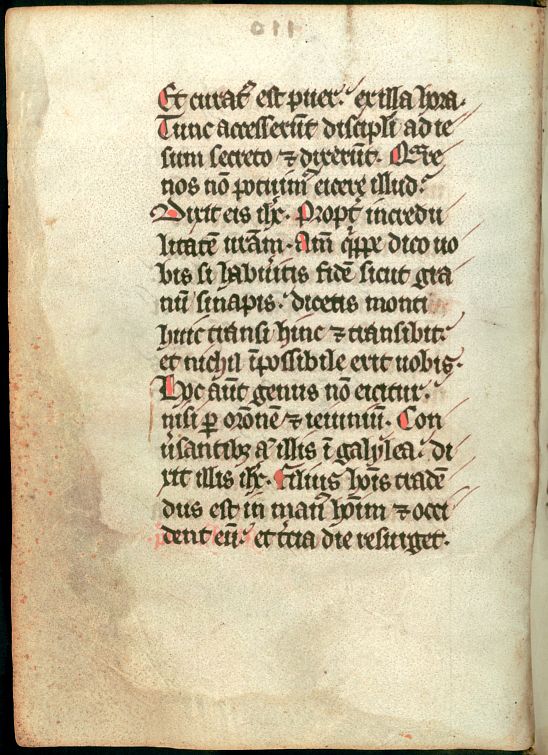 110
Et curat᷒ est puer. ex illa hora.
Tunc accesserūt discipli ad ie
sum secreto ⁊ dixerūt. Qr̄e
nos nō potuim᷒ eicere illud.
Dixit eis ih̄c. Propt̄ incredu
litatē urām. Am̄ q̄ppe dico uo
bis si habūitis fidē sicut gra
nū sinapis. dicetis monti
huic transi hinc ⁊ transibit.
et nichil īpossibile erit uobis.
Hoc aūt genus nō eicitur.
nisi ꝑ orōnē ⁊ ieiuniū. Con
ūsantibꝫ aͣ illis ī galylea. di
xit illis ih̄c. Filius hōis tradē
dus est in man᷒ hōim ⁊ occi
dent eū. et t̄cia die resurget.